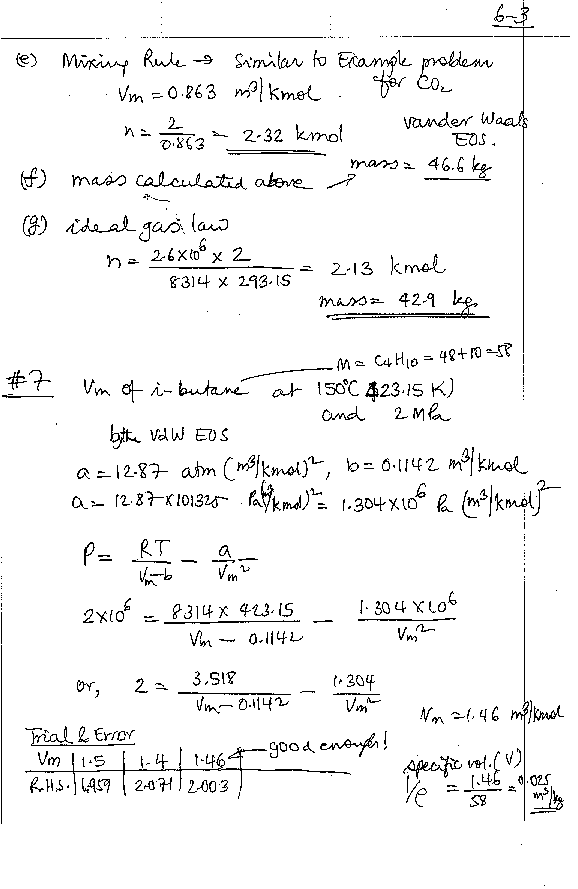 6-3
(e) Mixing Rule → Similar to Example problem
for CO2
Vm = 0.863 m³/kmol
n = 2/0.863 = 2.32 kmol
vander Waals
EOS.
mass = 46.6 kg
(f) mass calculated above
(g) ideal gas law
n = 2.6×10⁶ × 2 / 8314 × 293.15 = 2.13 kmol
mass = 42.9 kg
M = C4H10 = 48+10 = 58
#7 Vm of i-butane at 150°C (423.15 K)
and 2 MPa
by the VdW EOS
a = 12.87 atm (m³/kmol)², b = 0.1142 m³/kmol
a = 12.87×101325 Pa(m³/kmol)² = 1.304×10⁶ Pa (m³/kmol)²
P = RT/Vm-b - a/Vm²
2×10⁶ = 8314 × 423.15/Vm - 0.1142 - 1.304×10⁶/Vm²
or, 2 = 3.518/Vm-0.1142 - 1.304/Vm²
Vm = 1.46 m³/kmol
Trial & Error
good enough!
Vm | 1.5 | 1.4 | 1.46
R.H.S. | 1.959 | 2.071 | 2.003
specific vol. (V)
1/ρ = 1.46/58 = 0.025 m³/kg